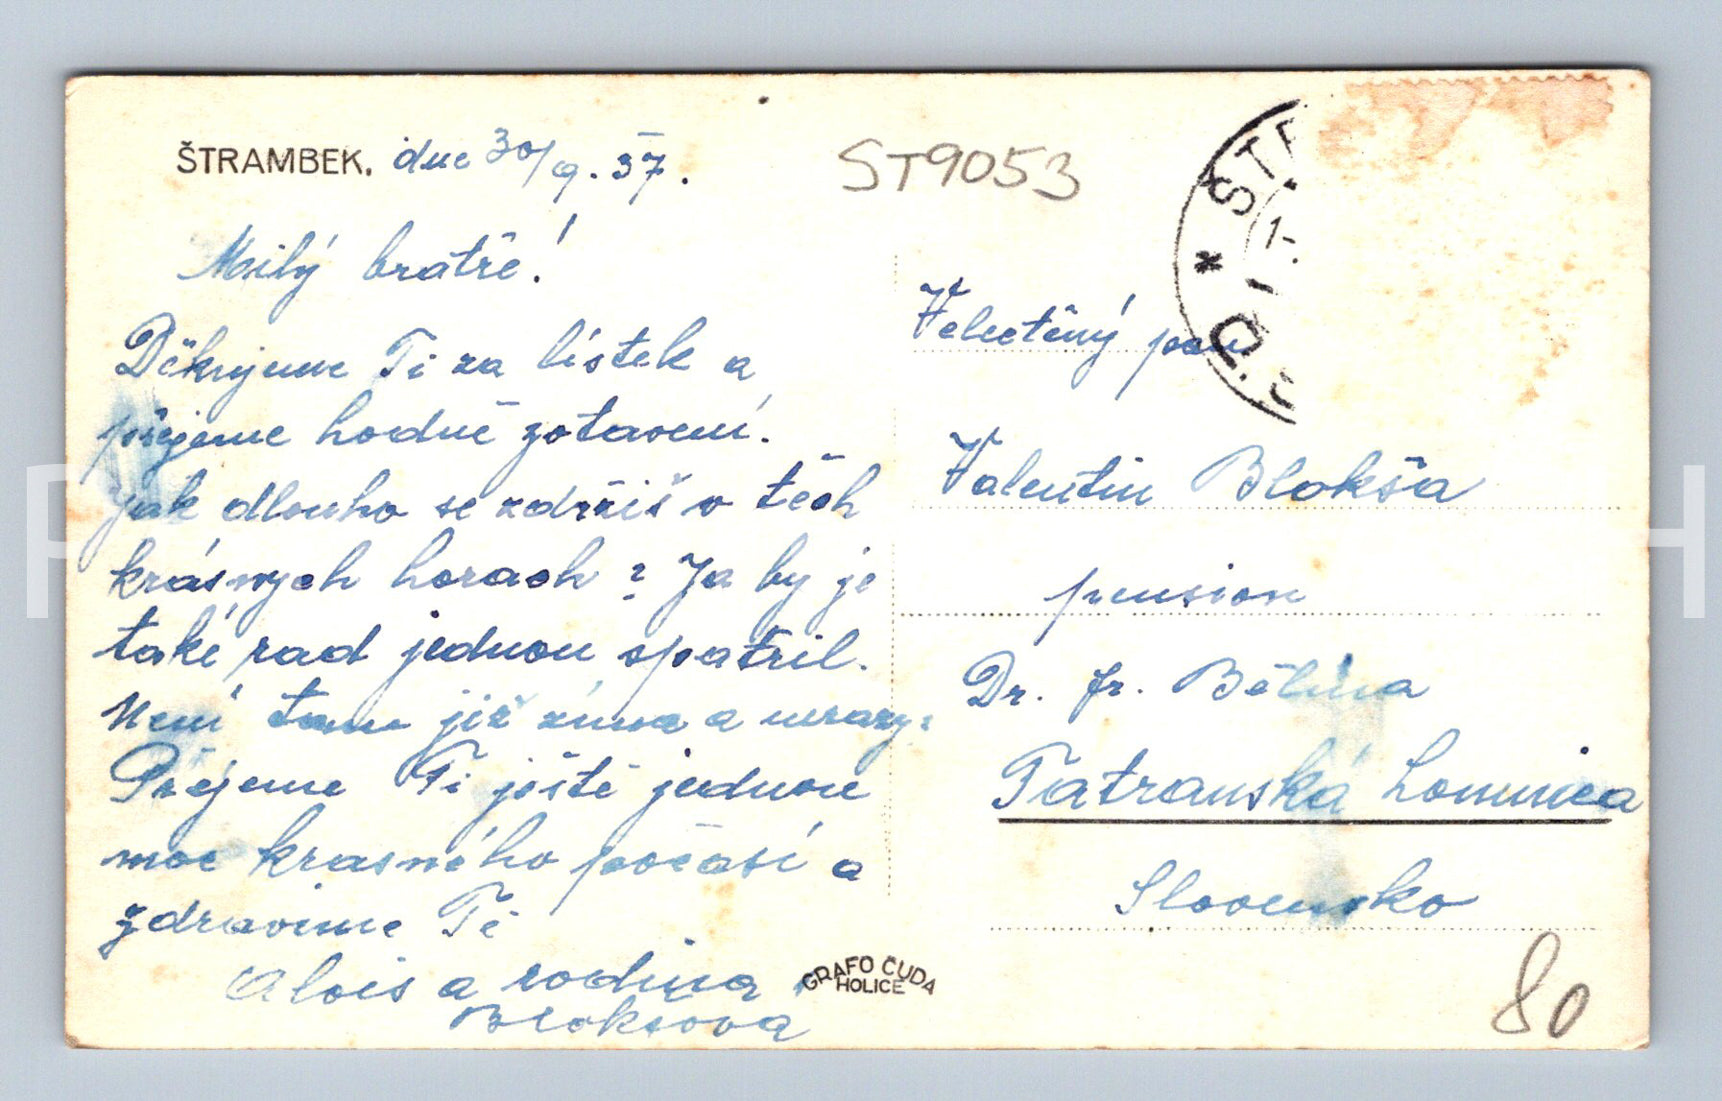 ŠTRAMBEK, dne 30/9. 37.
ST9053
Milý bratře!
Děkujeme Ti za lístek a
přejeme hodně zotavení.
Jak dlouho se zdržíš v těch
krásnych horach? Ja by je
také rad jednou spatřil.
Není tam již zima a mrazy?
Přejeme Ti ještě jednou
moc krasného počasí a
zdravime Tě
Alois a rodina
Bloksova
GRAFO ČUDA
HOLICE
* ŠTR
Velectěný pan
Valentin Blokša
pension
Dr. Fr. Bělina
Tatranská Lomnica
Slovensko
80
P H